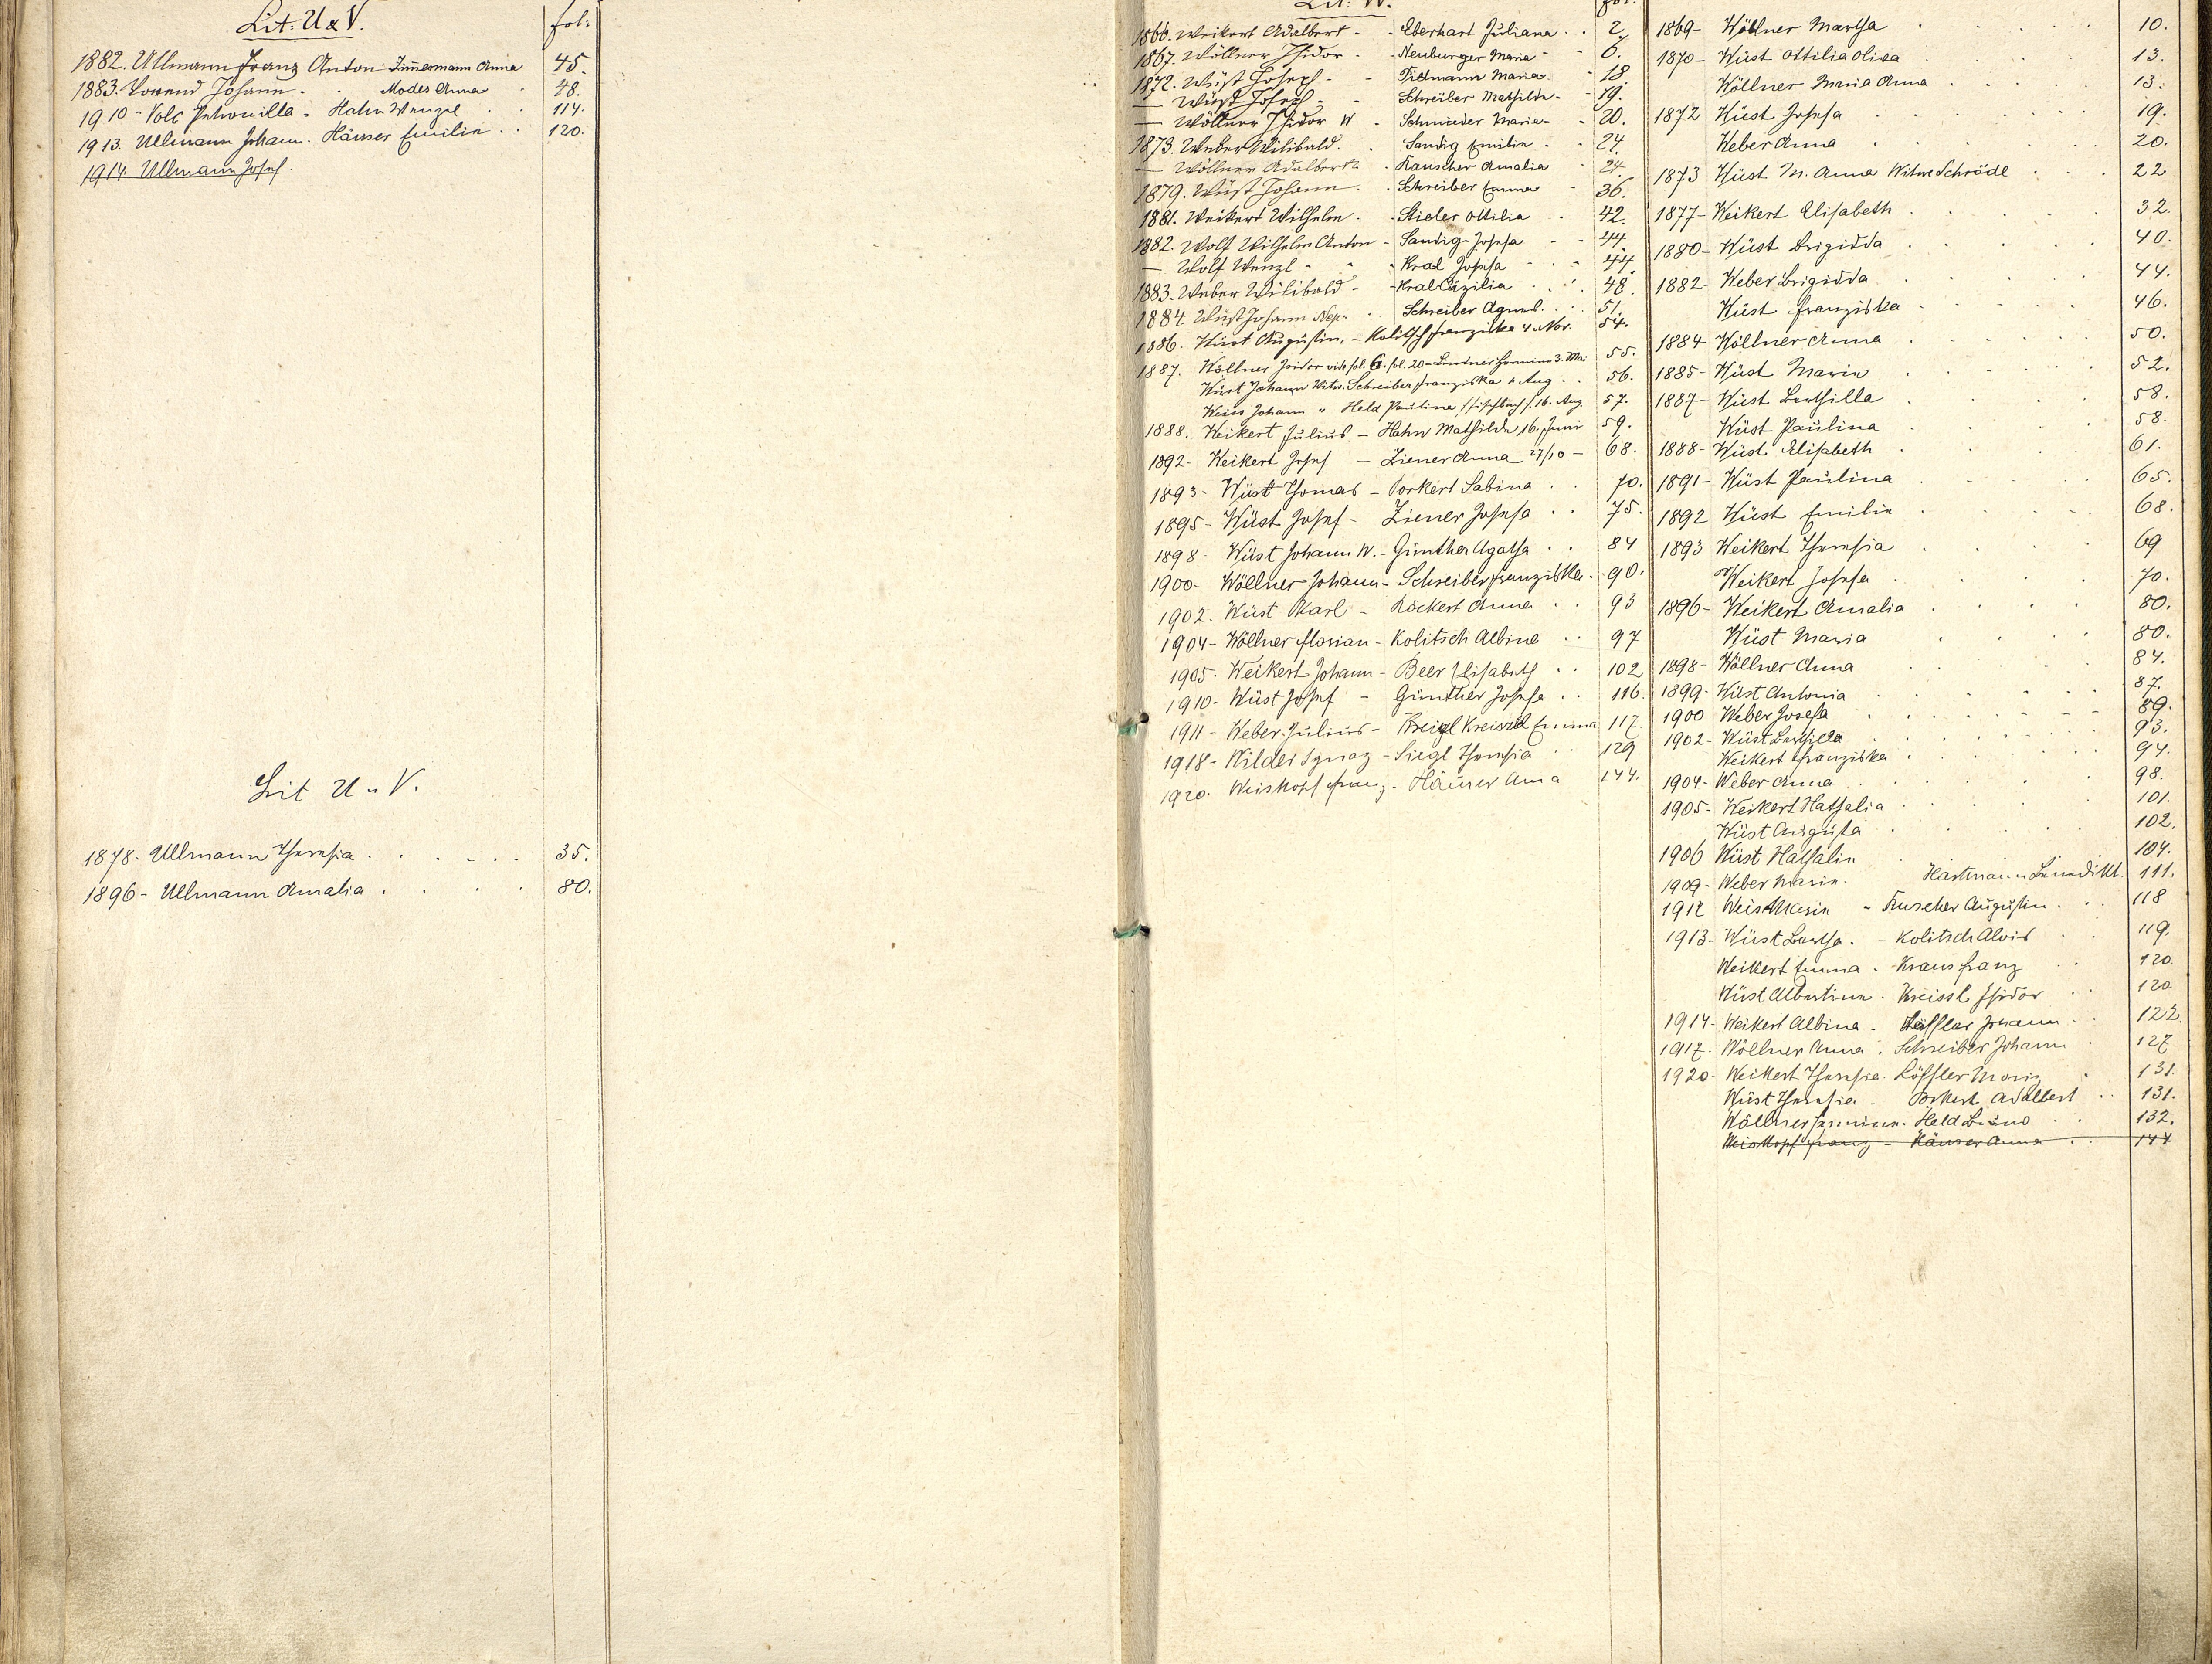 Lit: U & V. fol:
1882. Ullmann Franz Anton Zimmermann Anna 45.
1883. Johann - Modes Anna - 48.
1910 - Volc Petronilla - Hahn Wenzel . . 114.
1913. Ullmann Johann. Häuser Emilie . . 120.
1914 Ullmann Josef.
Lit U u V.
1878. Ullmann Theresia . . . . . 35.
1896 - Ullmann Amalia . . . . 80.
Lit: W. fol:
1866. Weikert Adalbert - - Eberhart Juliana . . 2.
1867. Wöllner Isidor - - Neuburger Maria - - 6.
1872. Wüst Joseph - - Maria - - 18.
— Wüst Joseph - - Schreiber Mathilde - - 19.
— Wöllner Isidor W - Schmieder Maria - - 20.
1873. Weber Wilibald. . Sandig Emilie . - 24.
— Wöllner Adalbert - Rauscher Amalia 24.
1879. Wüst Johann. . Schreiber Emma - 36.
1881. Weikert Wilhelm . Stieler Ottilia . . 42.
1882. Wolf Wilhelm Anton - Sandig - Josefa - - 44
— Wolf Wenzl - - - Kral Josefa - - 44.
1883. Weber Wilibald - - Kral Cäzilia . . . 48.
1884. Wüst Johann Nep. . Schreiber Agnes. . 51.
1886. Wüst Augustin. - Kolitsch Franziska 4. Nov. 54.
1887. Wöllner Isidor vide fol. 6. fol. 20 - Lindner Hermine 3. Mai 55.
Wüst Johann Witw. Schreiber Franziska Aug . . 56.
Weiss Johann " Held Paulina 16. Aug. 57.
1888. Weikert Julius - Hahn Mathilde 16. Juni 59.
1892 - Weikert Josef - Ziener Anna 27/10 - 68.
1893 - Wüst Thomas - Porkert Sabina . . 70.
1895 - Wüst Josef - Ziener Josefa . . 75.
1898 - Wüst Johann W. - Günther Agatha . . 84
1900 - Wöllner Johann - Schreiber Franziska . 90.
1902. Wüst Karl - Röckert Anna . . 93
1904 - Wöllner Florian - Kolitsch Albine . . 97
1905. Weikert Johann - Beer Elisabeth . . 102
1910 - Wüst Josef - Günther Josefa . . 116
1911 - Weber Julius - Kreissl Emma 117.
1918 - Wilder Ignaz - Siegl Theresia . . 129
1920. Weiskopf Franz. Häuser Anna 144.
1869 - Wöllner Martha . . . . 10.
1870 - Wüst Ottilia Olisa . . . . 13.
Wöllner Maria Anna . . . . 13.
1872 Wüst Josefa . . . . 19.
Weber Anna . . . . 20.
1873 Wüst M. Anna Witwe Schrödl . . . 22
1877 - Weikert Elisabeth . . . . 32.
1880 - Wüst Brigidda . . . . 40.
1882 - Weber Brigidda . . . . 44.
Wüst Franziska . . . . 46.
1884 - Wöllner Anna . . . . 50.
1885 - Wüst Marie . . . . 52.
1887 - Wüst Berthilla . . . . 58.
Wüst Paulina . . . . 58
1888 - Wüst Elisabeth . . . . 61.
1891 - Wüst Paulina . . . . 65.
1892 Wüst Emilie . . . . 68.
1893 Weikert Theresia . . . . 69
Weikert Josefa . . . . 70.
1896 - Weikert Amalia . . . . 80.
Wüst Maria . . . . 80.
1898 - Wöllner Anna . . . . 84.
1899 - Wüst Antonia . . . . 87.
1900 Weber Josefa . . . . 89.
1902 - Wüst Berthilla . . . . 93.
Weikert Franziska . . . . 94.
1904 - Weber Anna . . . . 98.
1905 - Weikert Nathalia . . . . 101.
Wüst Augusta . . . . 102.
1906 Wüst Nathalie . . . 104.
1909 - Weber Marie. Hartmann Benedikt. 111.
1912 Weis Marie - Ruscher Augustin . . . 118
1913 - Wüst Bertha. - Kolitsch Alois . . 119.
Weikert Emma. - Kraus Franz . . 120
Wüst Albertine. Kreissl Isidor . . 120
1914 - Weikert Albina - Johann . . 122.
1917. Wöllner Anna. Schreiber Johann . 127
1920 - Weikert Theresia. Löffler Moriz . 131.
Wüst Theresia - Porkert Adalbert . . 131.
Wöllner Hermine. Held Bruno . . 132.
Weiskopf Franz - Häuser Anna . . 144